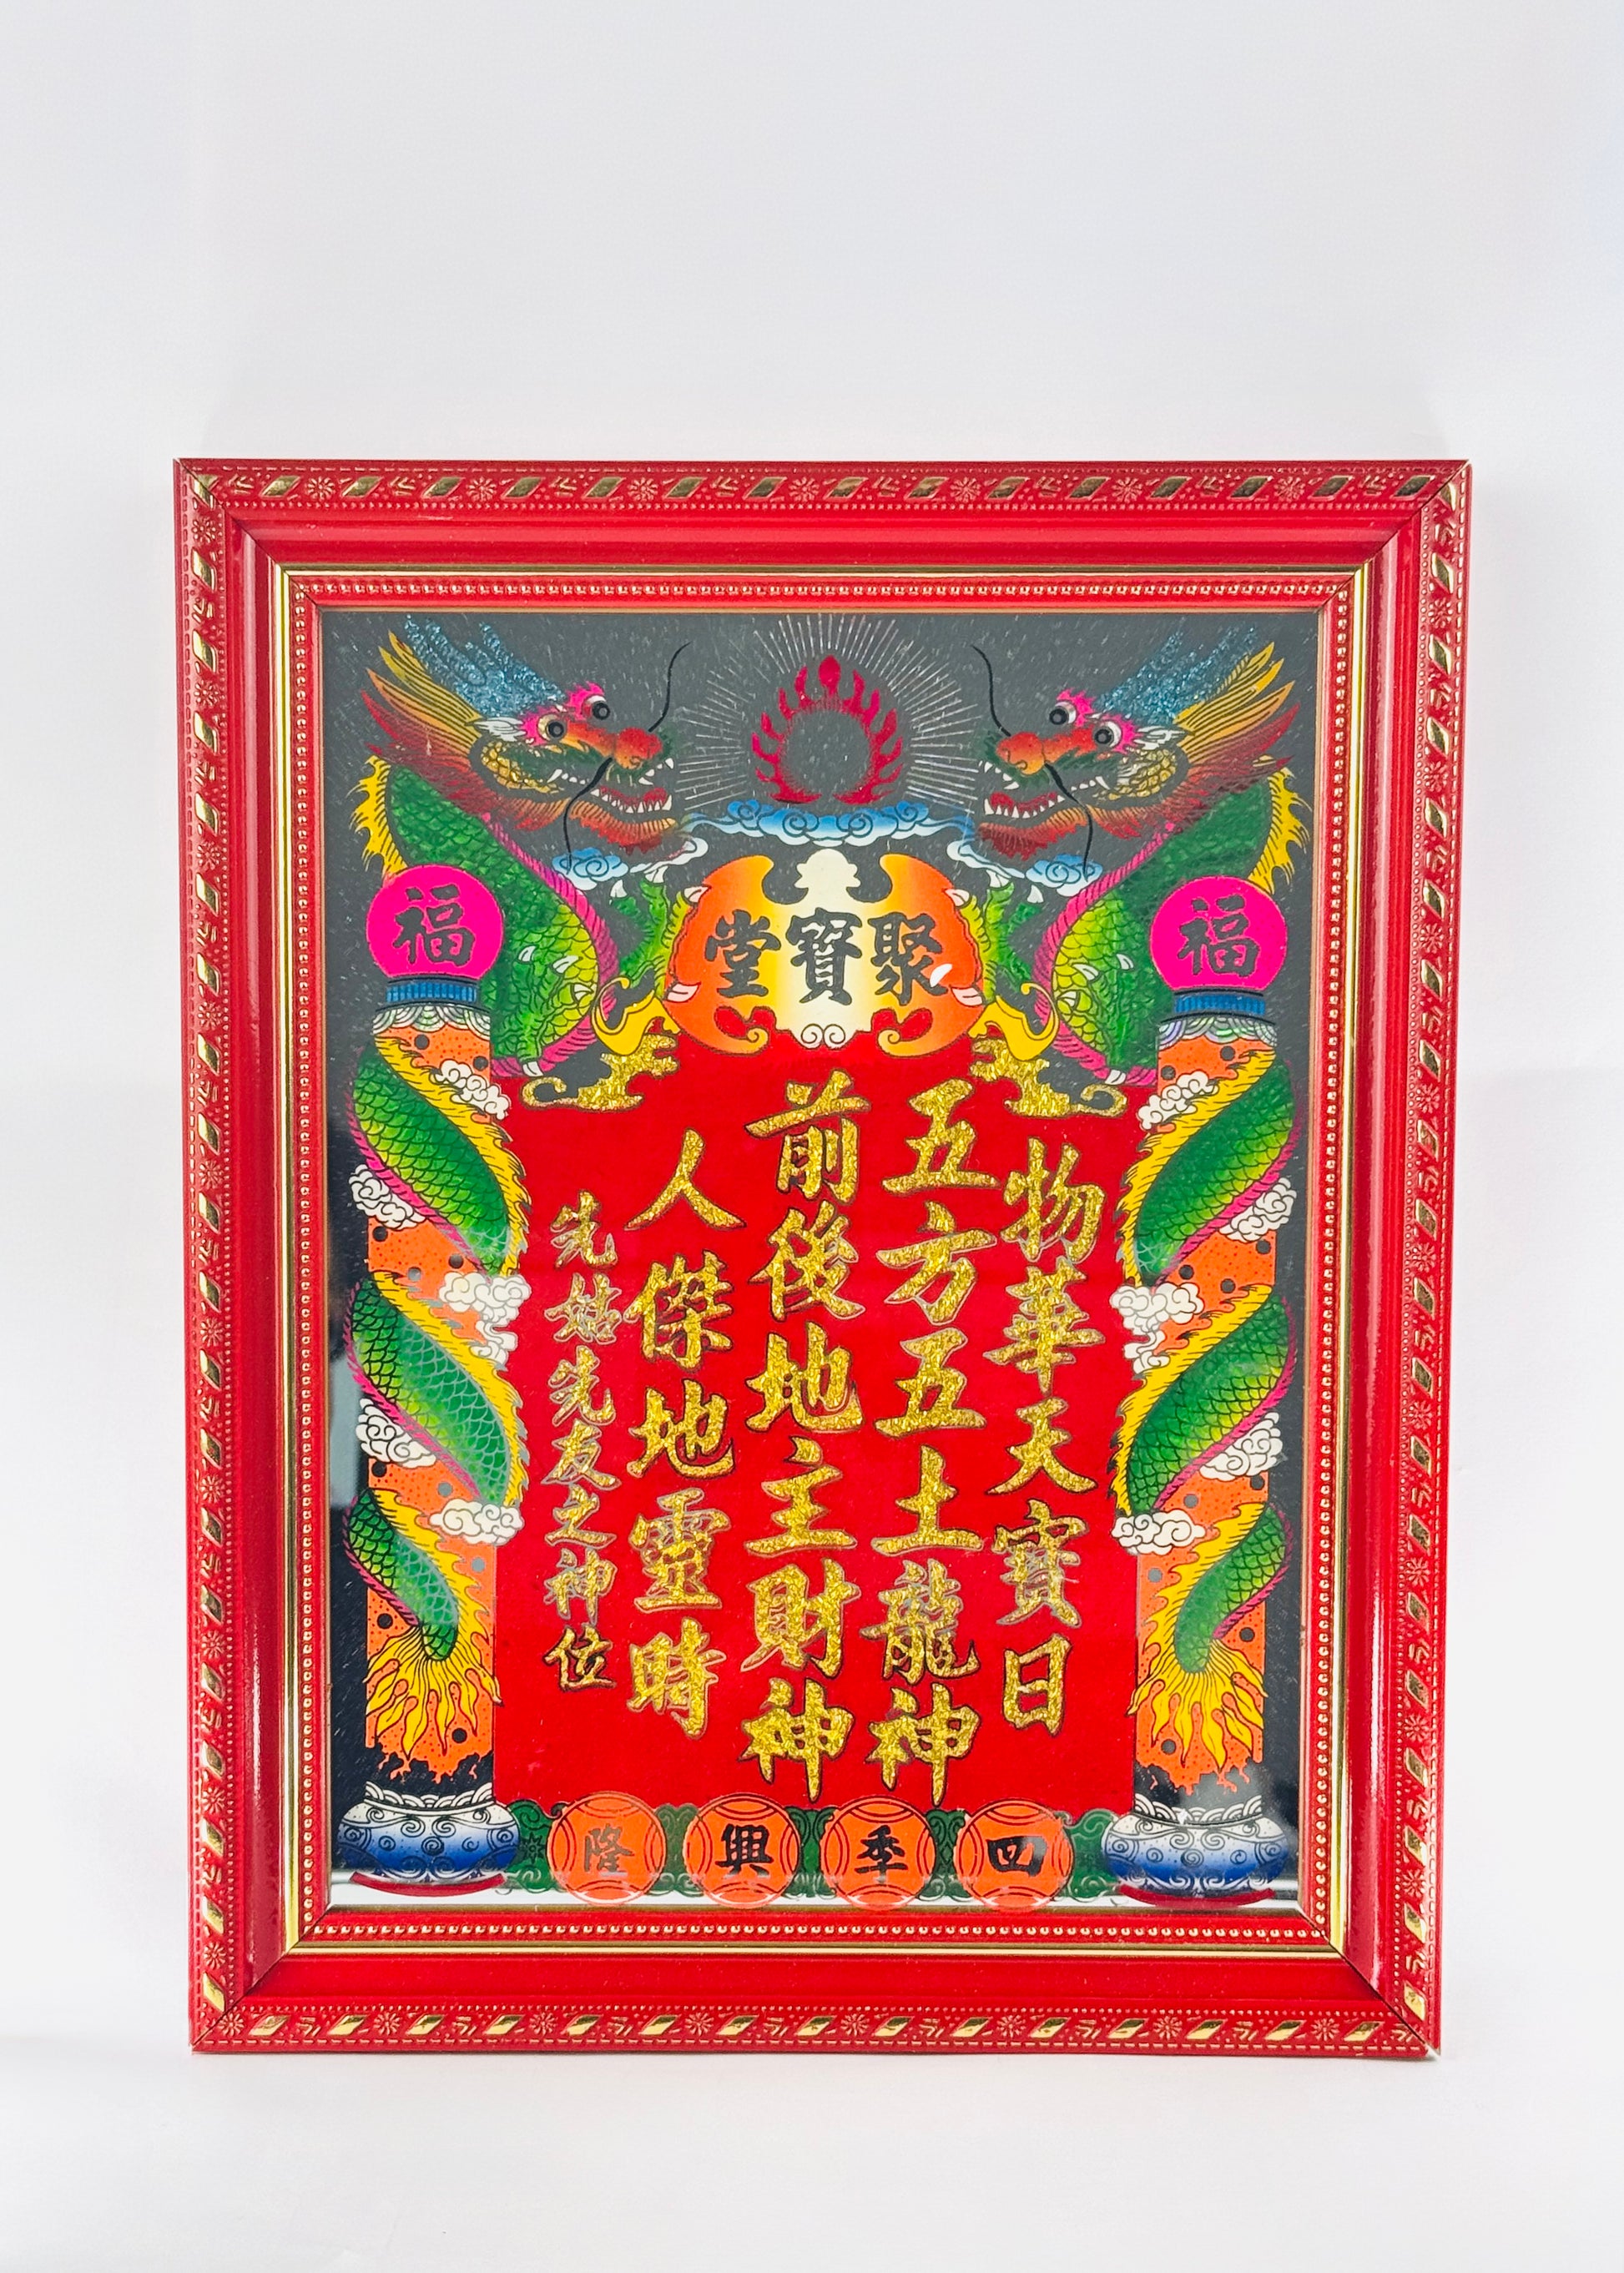 聚寳堂
福
福
物華天寳日
五方五土龍神
前後地主財神
人傑地靈時
先姑先友之神位
四季興隆